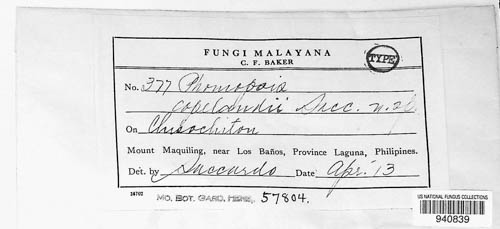 FUNGI MALAYANA
C. F. BAKER
TYPE
No. 377 Phomopsis
copelandii Sacc. n. sp.
On Chisocheton
Mount Maquiling, near Los Baños, Province Laguna, Philipines.
Det. by Saccardo Date Apr. '13
26702
MO. BOT. GARD. HERB. 57804.
US NATIONAL FUNGUS COLLECTIONS
940839